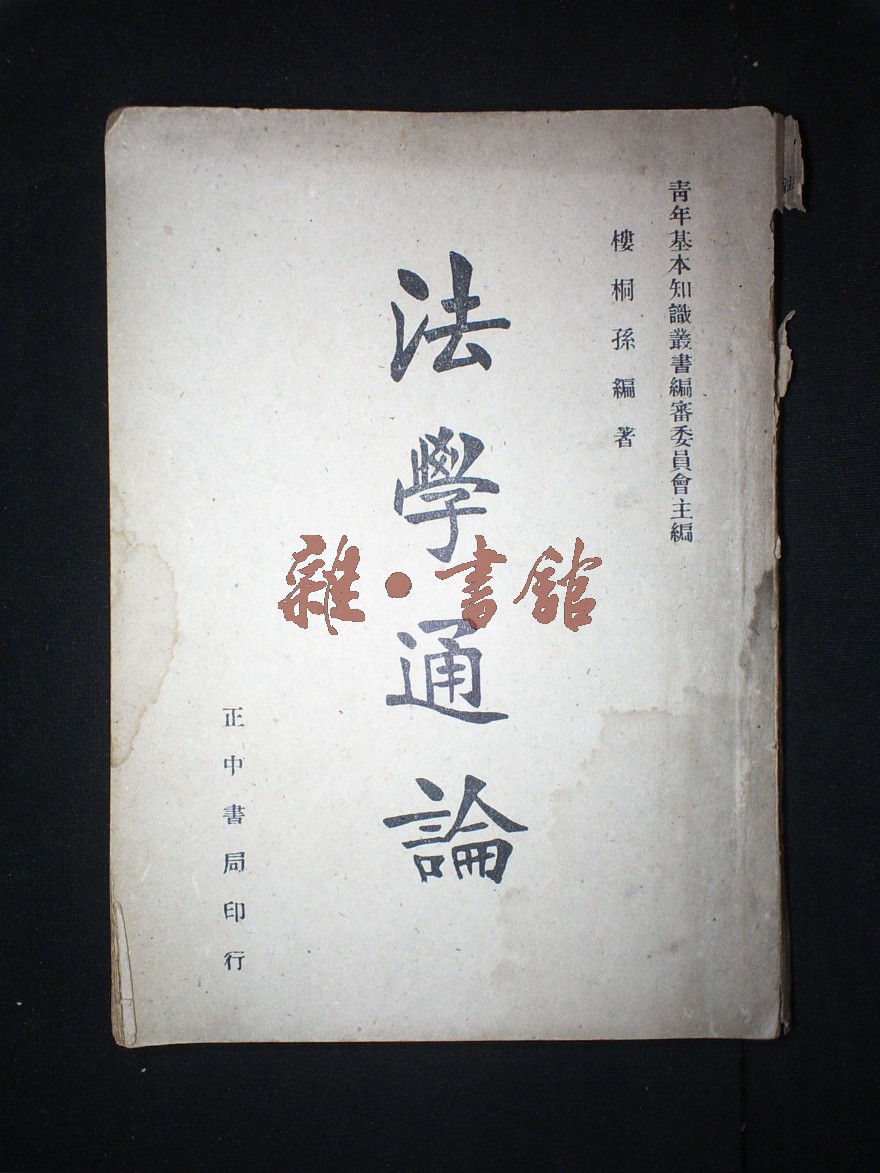 青年基本知識叢書編審委員會主編
樓桐孫編著
法學通論
正中書局印行
雜·書館